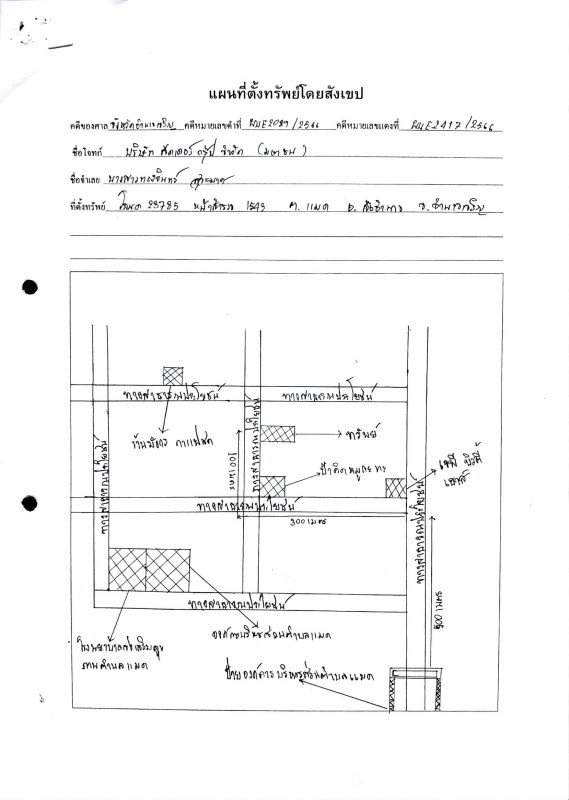 แผนที่ตั้งทรัพย์โดยสังเขป
คดีของศาล จังหวัดอำนาจเจริญ คดีหมายเลขดำที่ ผบE2089/2566 คดีหมายเลขแดงที่ ผบE2417/2566
ชื่อโจทก์ บริษัท ลีดเดอร์ กรุ๊ป จำกัด (มหาชน)
ชื่อจำเลย นางสาวทองอินทร์
ที่ตั้งทรัพย์ โฉนด 28785 หน้าสำรวจ 1543 ต. แมด อ. ลืออำนาจ จ. อำนาจเจริญ
ทางสาธารณประโยชน์
ทางสาธารณประโยชน์
ร้านมิตร กาแฟสด
ทางสาธารณประโยชน์
ทางสาธารณประโยชน์
100 เมตร
ทรัพย์
ป้าติ๋มหมูกะทะ
บิวตี้
ทางสาธารณประโยชน์
300 เมตร
ทางสาธารณประโยชน์
500 เมตร
ทางสาธารณประโยชน์
องค์การบริหารส่วนตำบลแมด
โรงพยาบาลส่งเสริมสุข
ภาพตำบลแมด
ป้ายองค์การบริหารส่วนตำบลแมด